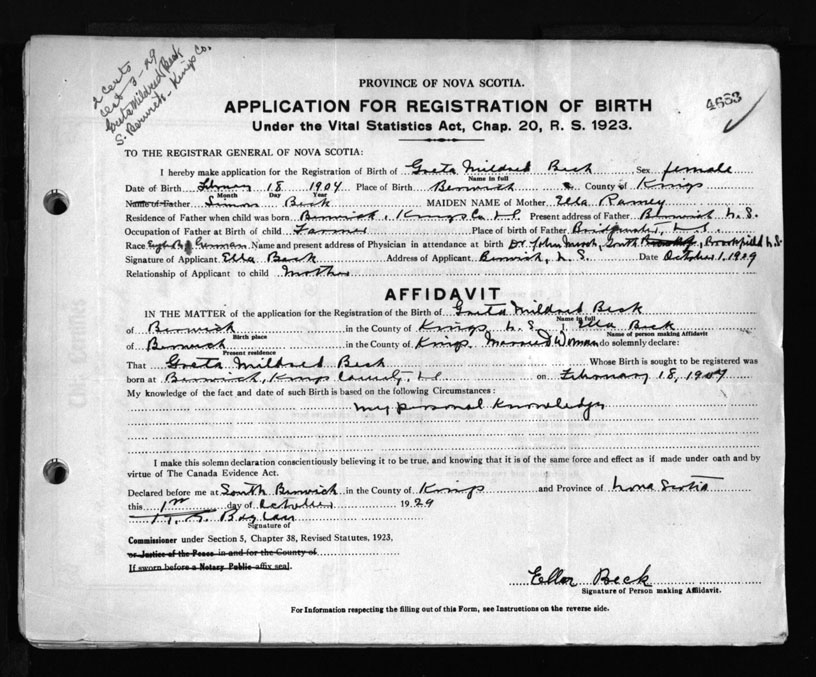 2 Certs
Cert 3-29
Greta Mildred Beck
S. Berwick - Kings Co.
4663
PROVINCE OF NOVA SCOTIA.
APPLICATION FOR REGISTRATION OF BIRTH
Under the Vital Statistics Act, Chap. 20, R. S. 1923.
TO THE REGISTRAR GENERAL OF NOVA SCOTIA:
I hereby make application for the Registration of Birth of Greta Mildred Beck Sex female
Name in full
Date of Birth February 18 1904 Place of Birth Berwick County of Kings
Month Day Year
Name of Father Simeon Beck MAIDEN NAME of Mother Ella Ramey
Residence of Father when child was born Berwick, Kings Co. N.S. Present address of Father Berwick N.S.
Occupation of Father at Birth of child Farmer Place of birth of Father Bridgewater, N.S.
Race German Name and present address of Physician in attendance at birth Dr. John South Brookfield N.S.
Signature of Applicant Ella Beck Address of Applicant Berwick, N.S. Date October 1, 1929
Relationship of Applicant to child Mother
AFFIDAVIT
IN THE MATTER of the application for the Registration of the Birth of Greta Mildred Beck
Name in full
of Berwick in the County of Kings N.S. I, Ella Beck
Birth place Name of person making Affidavit
of Berwick in the County of Kings Married Woman do solemnly declare:
Present residence
That Greta Mildred Beck Whose Birth is sought to be registered was
born at Berwick, Kings County, N.S on February 18, 1904
My knowledge of the fact and date of such Birth is based on the following Circumstances:
my personal knowledge
I make this solemn declaration conscientiously believing it to be true, and knowing that it is of the same force and effect as if made under oath and by
virtue of The Canada Evidence Act.
Declared before me at South Berwick in the County of Kings and Province of Nova Scotia
this 1st day of October 1929
Signature of
Commissioner under Section 5, Chapter 38, Revised Statutes, 1923,
or Justice of the Peace in and for the County of
If sworn before a Notary Public affix seal.
Ella Beck
Signature of Person making Affidavit.
For Information respecting the filling out of this Form, see Instructions on the reverse side.